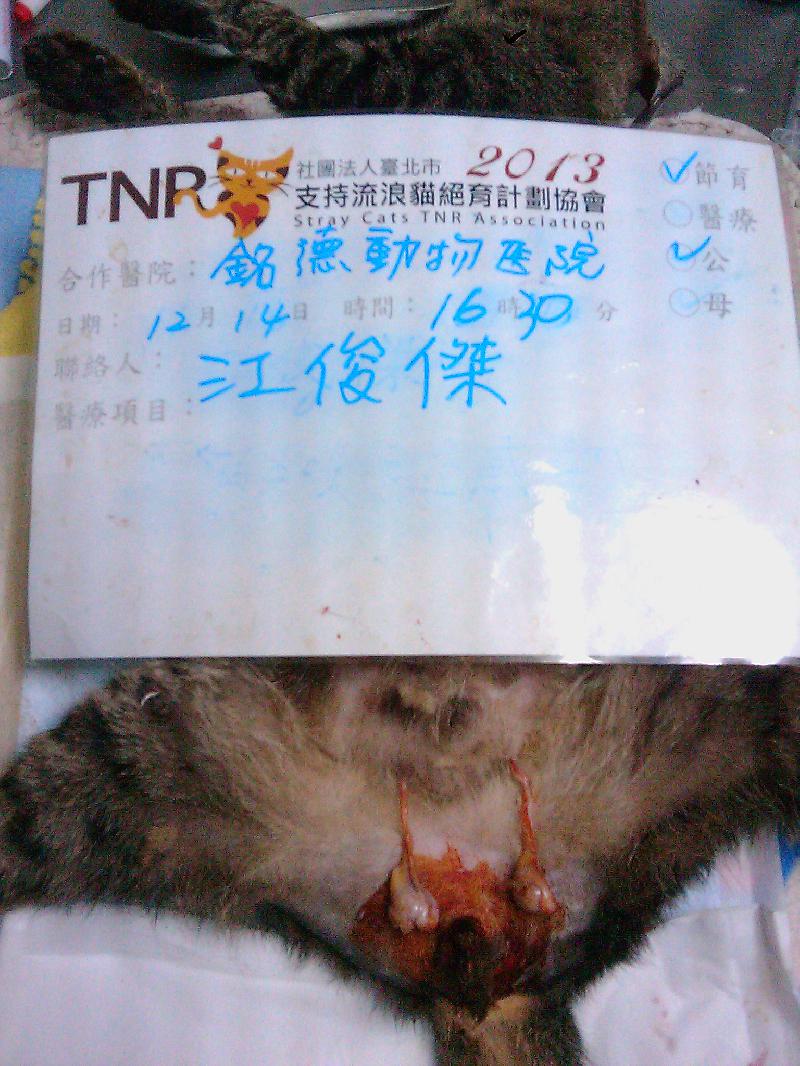 TNR
社團法人臺北市 2013
支持流浪貓絕育計劃協會
Stray Cats TNR Association
節育
醫療
公
母
合作醫院：銘德動物医院
日期：12月14日 時間：16時30分
聯絡人：江俊傑
醫療項目：